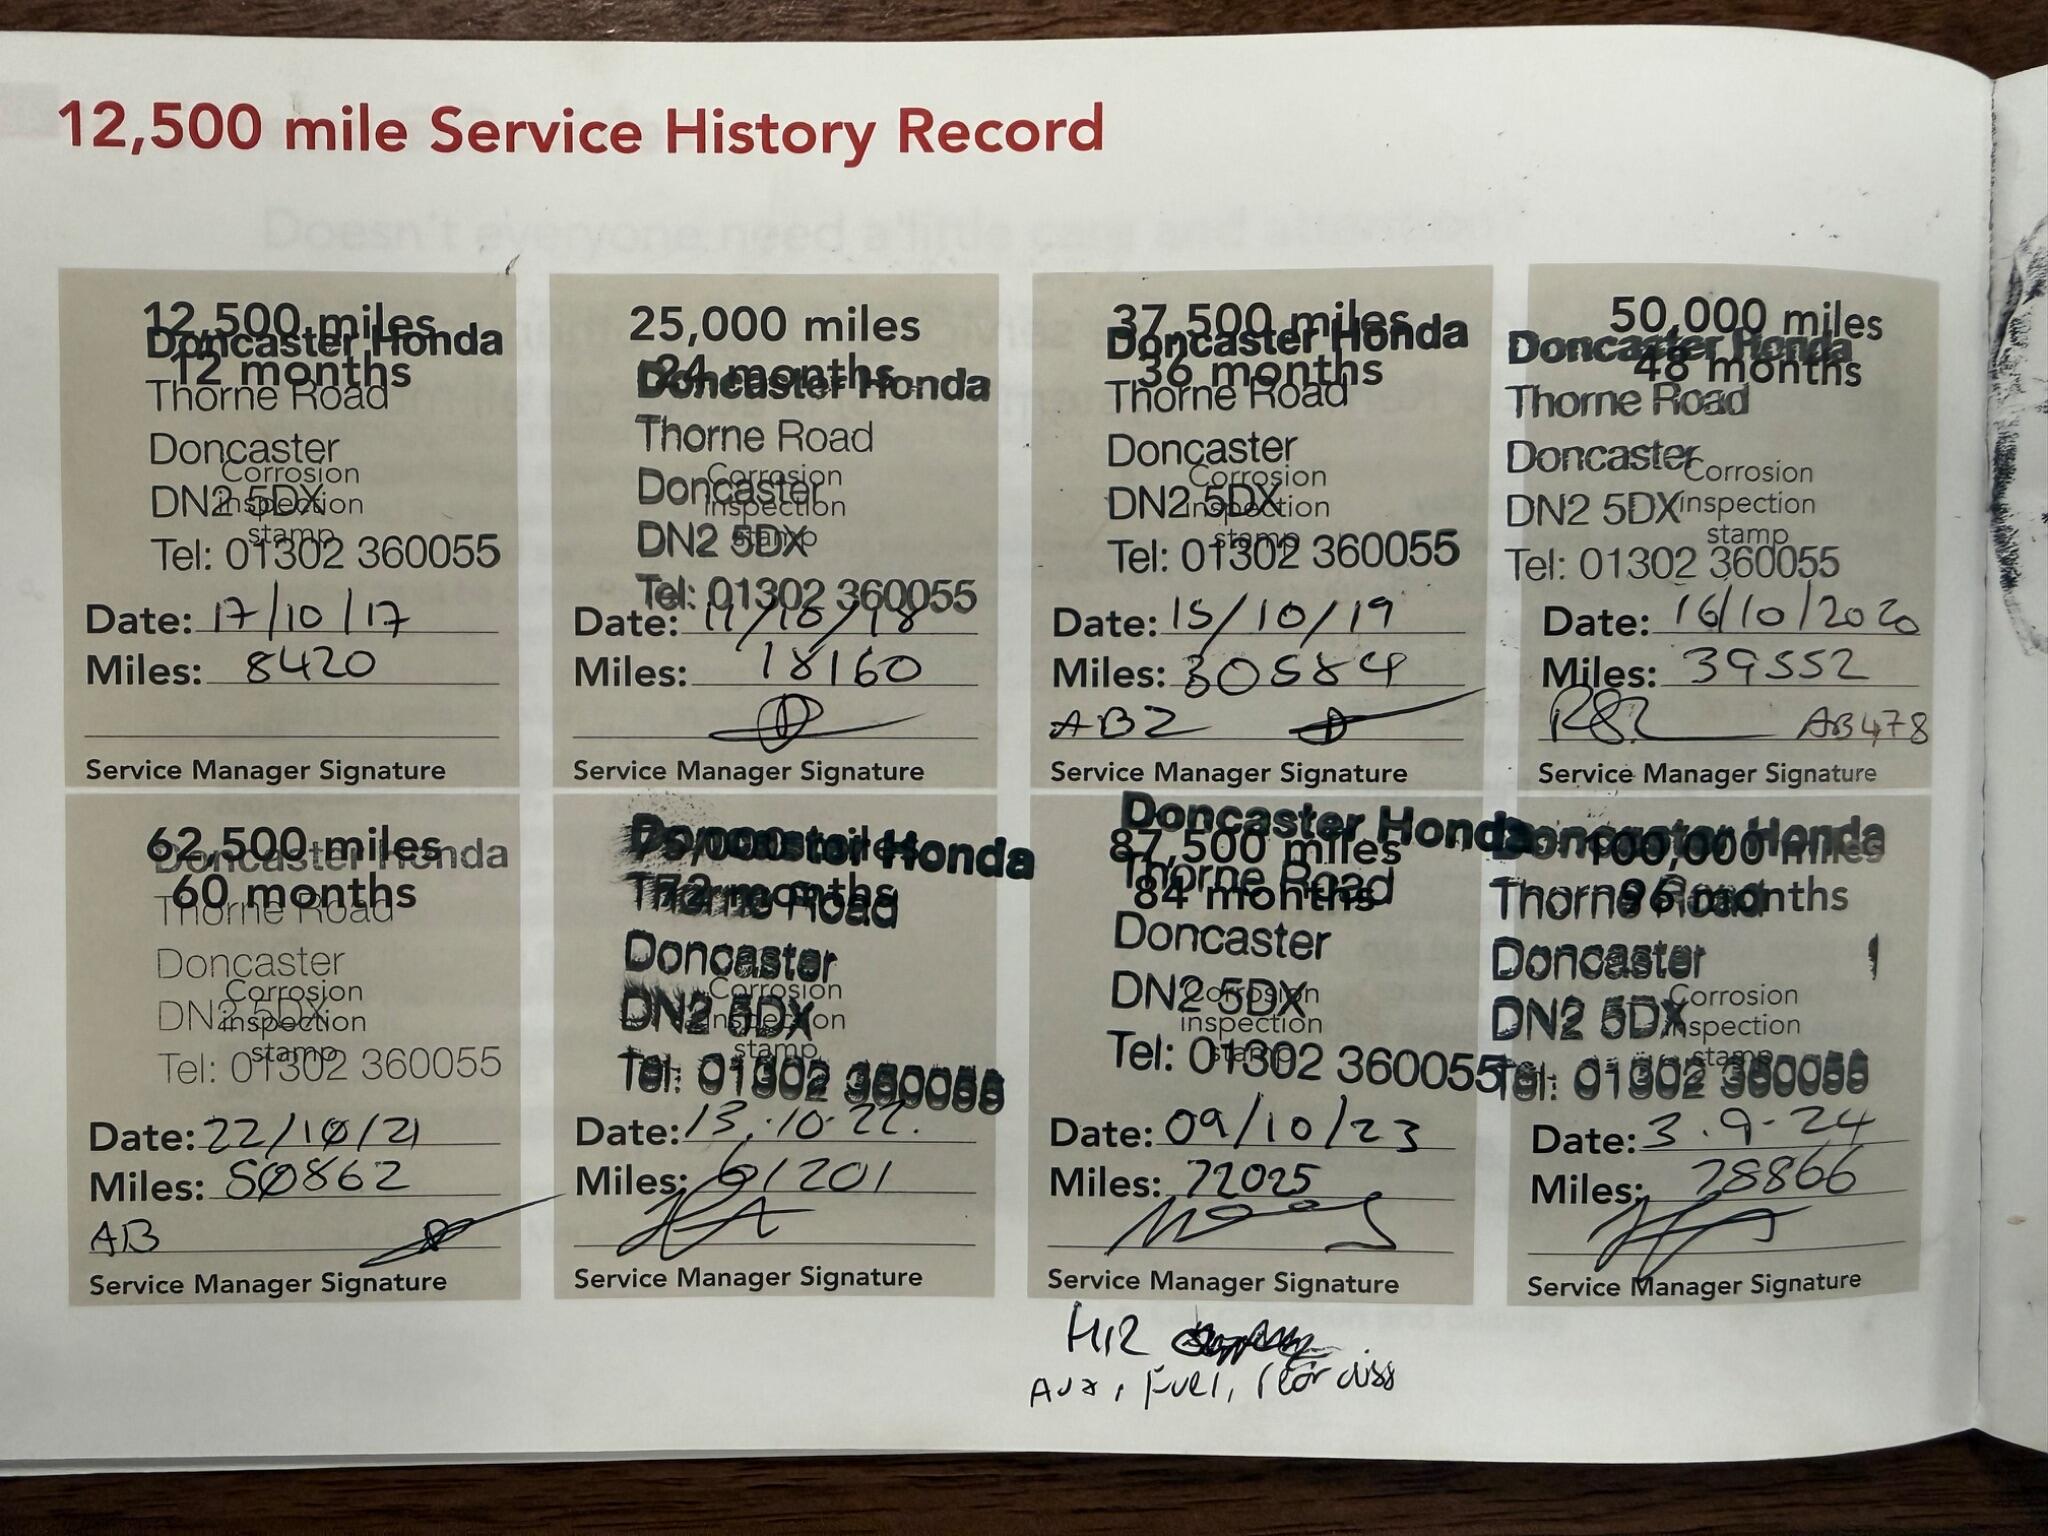 12,500 mile Service History Record
12,500 miles
12 months
Doncaster Honda
Thorne Road
Doncaster
DN2 5DX
Tel: 01302 360055
Corrosion
inspection
stamp
Date: 17/10/17
Miles: 8420
Service Manager Signature
25,000 miles
24 months
Doncaster Honda
Thorne Road
Doncaster
DN2 5DX
Tel: 01302 360055
Corrosion
inspection
stamp
Date: 11/10/18
Miles: 18160
Service Manager Signature
37,500 miles
36 months
Doncaster Honda
Thorne Road
Doncaster
DN2 5DX
Tel: 01302 360055
Corrosion
inspection
stamp
Date: 15/10/19
Miles: 30584
AB2
Service Manager Signature
50,000 miles
48 months
Doncaster Honda
Thorne Road
Doncaster
DN2 5DX
Tel: 01302 360055
Corrosion
inspection
stamp
Date: 16/10/2020
Miles: 39552
AB478
Service Manager Signature
62,500 miles
60 months
Doncaster Honda
Thorne Road
Doncaster
DN2 5DX
Tel: 01302 360055
Corrosion
inspection
stamp
Date: 22/10/21
Miles: 50862
AB
Service Manager Signature
75,000 miles
72 months
Doncaster Honda
Thorne Road
Doncaster
DN2 5DX
Tel: 01302 360055
Corrosion
inspection
stamp
Date: 13.10.22.
Miles: 61201
Service Manager Signature
87,500 miles
84 months
Doncaster Honda
Thorne Road
Doncaster
DN2 5DX
Tel: 01302 360055
Corrosion
inspection
stamp
Date: 09/10/23
Miles: 72025
Service Manager Signature
100,000 miles
96 months
Doncaster Honda
Thorne Road
Doncaster
DN2 5DX
Tel: 01302 360055
Corrosion
inspection
stamp
Date: 3.9.24
Miles: 78866
Service Manager Signature
Aux, Fuel,